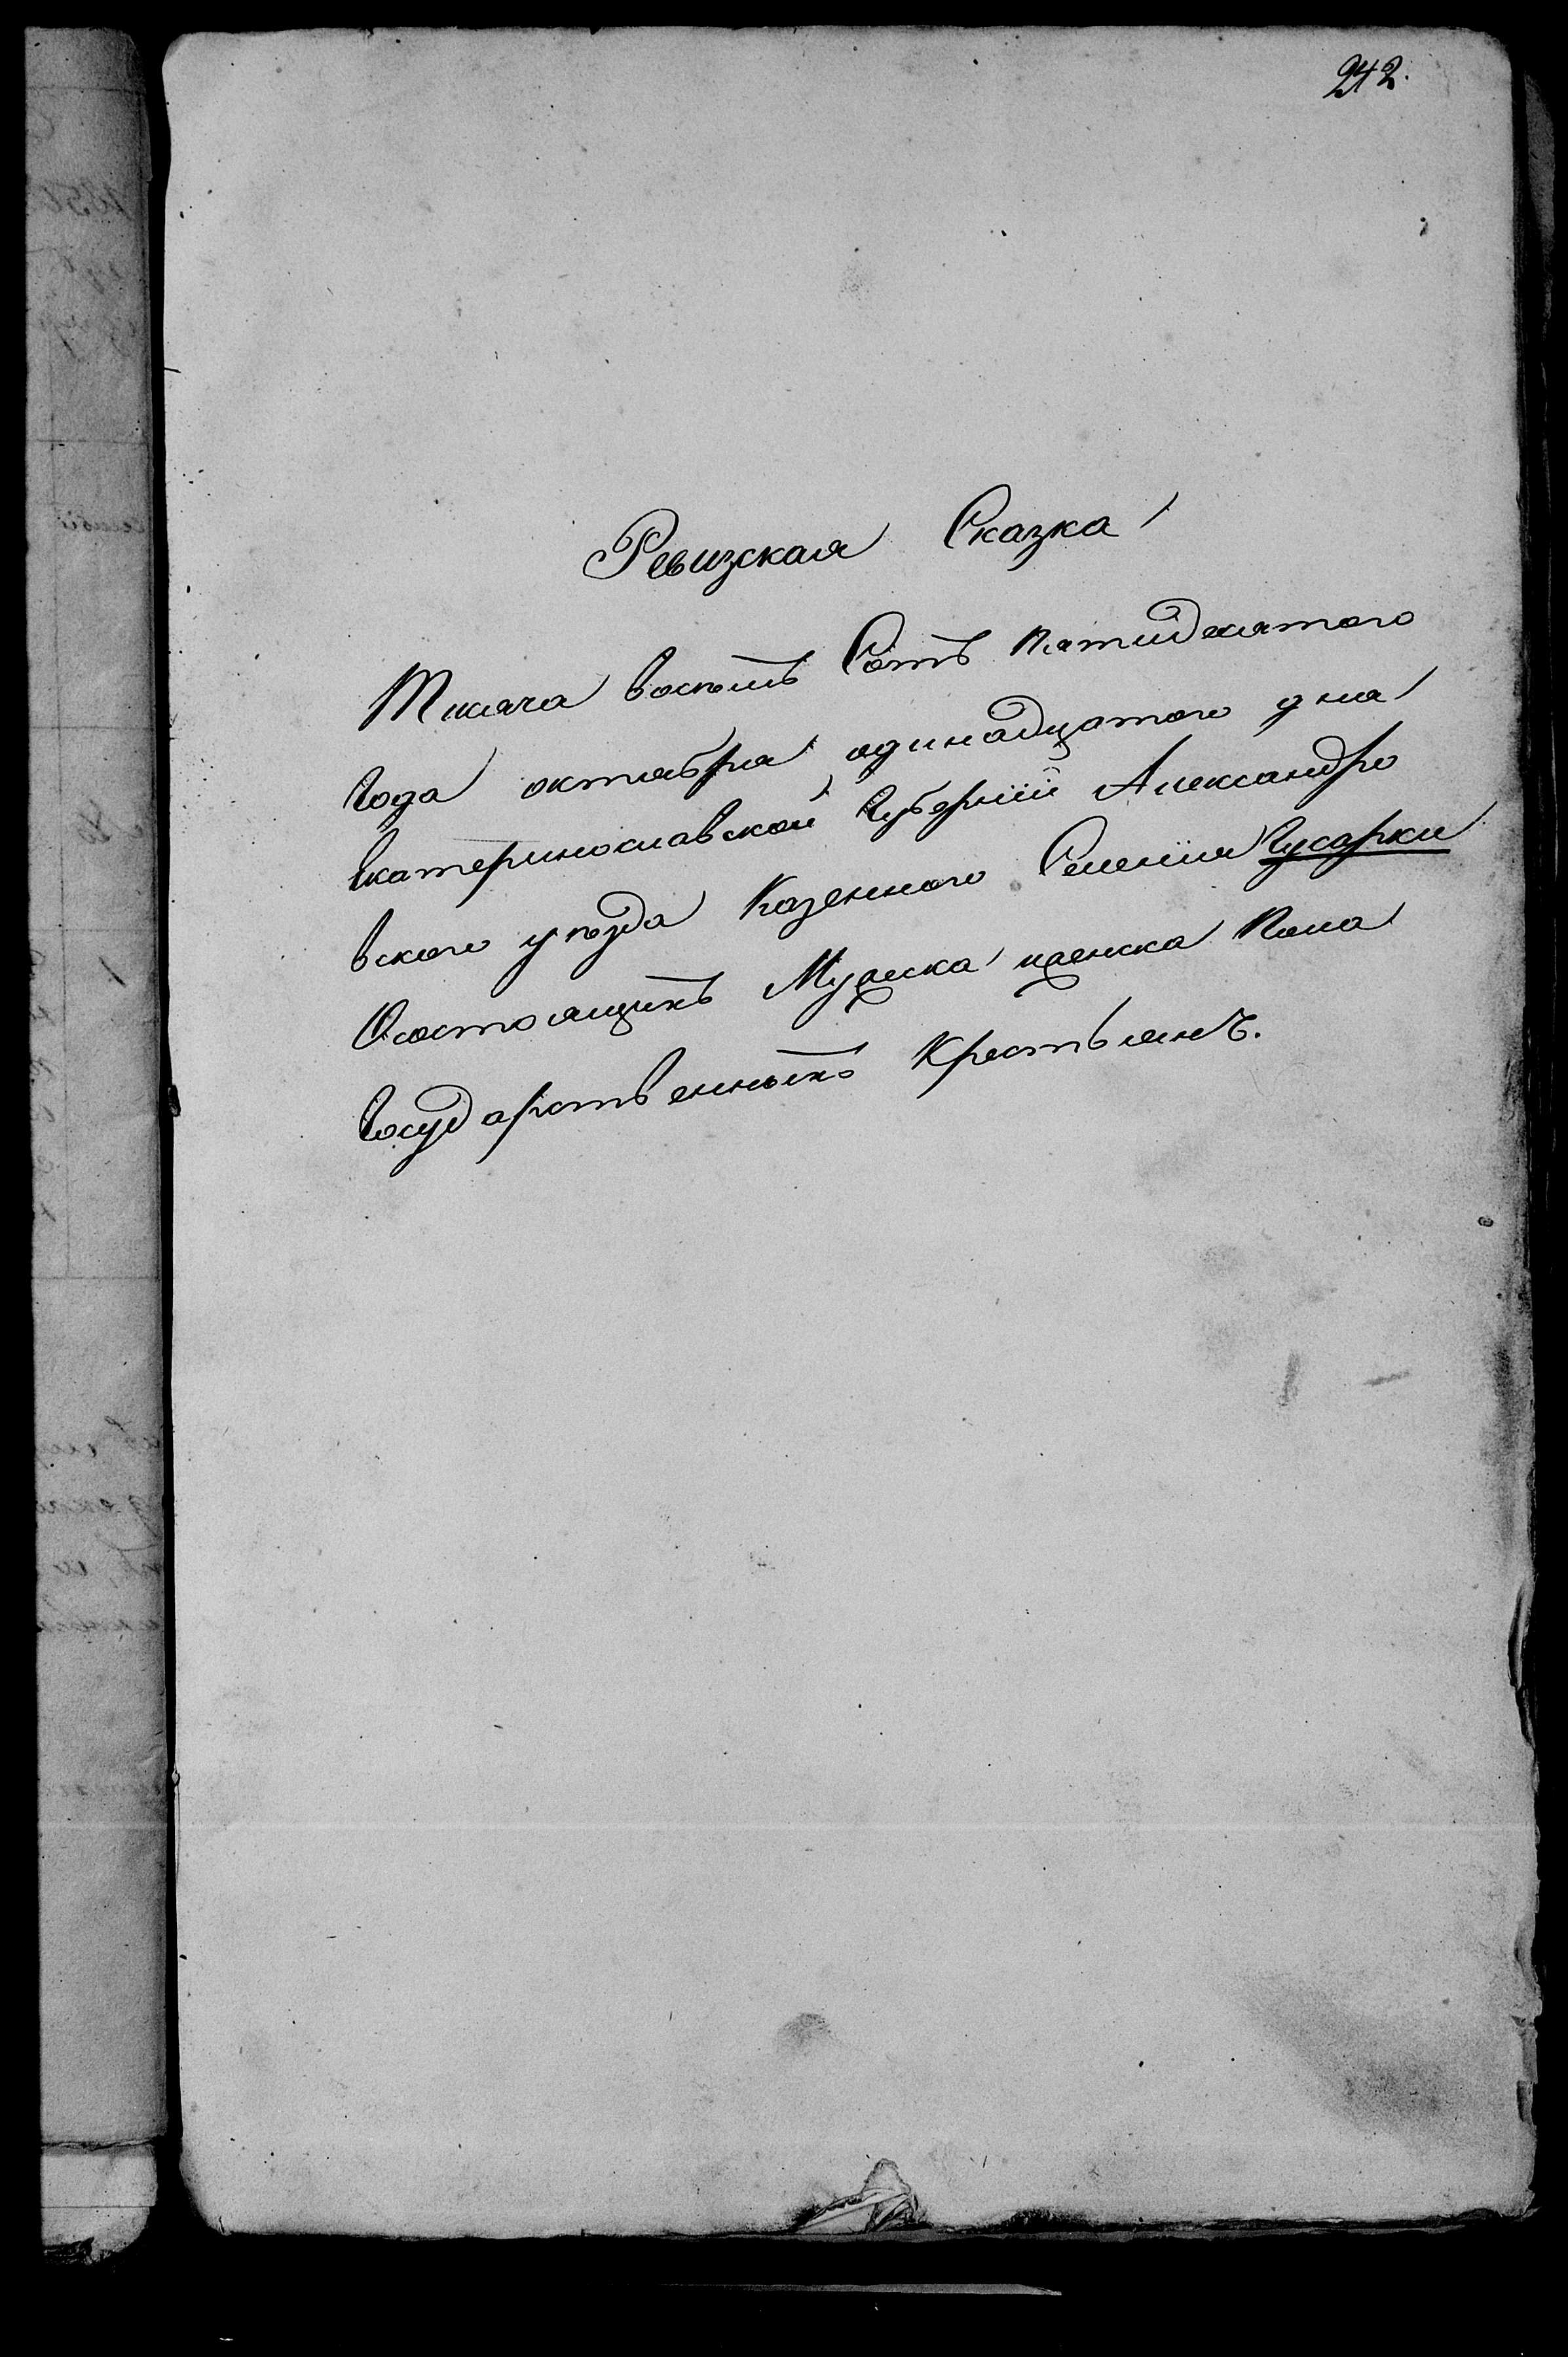 242.
Ревизская Сказка
Тысяча восемь Сотъ пятидесятого
Года октября одинадцатого дня
Екатеринославской Губерніи Александро
вского уезда Казенного Селенія Гусарки
О состоящихъ Мужеска и женска Пола
Государственныхъ Крестьянъ.